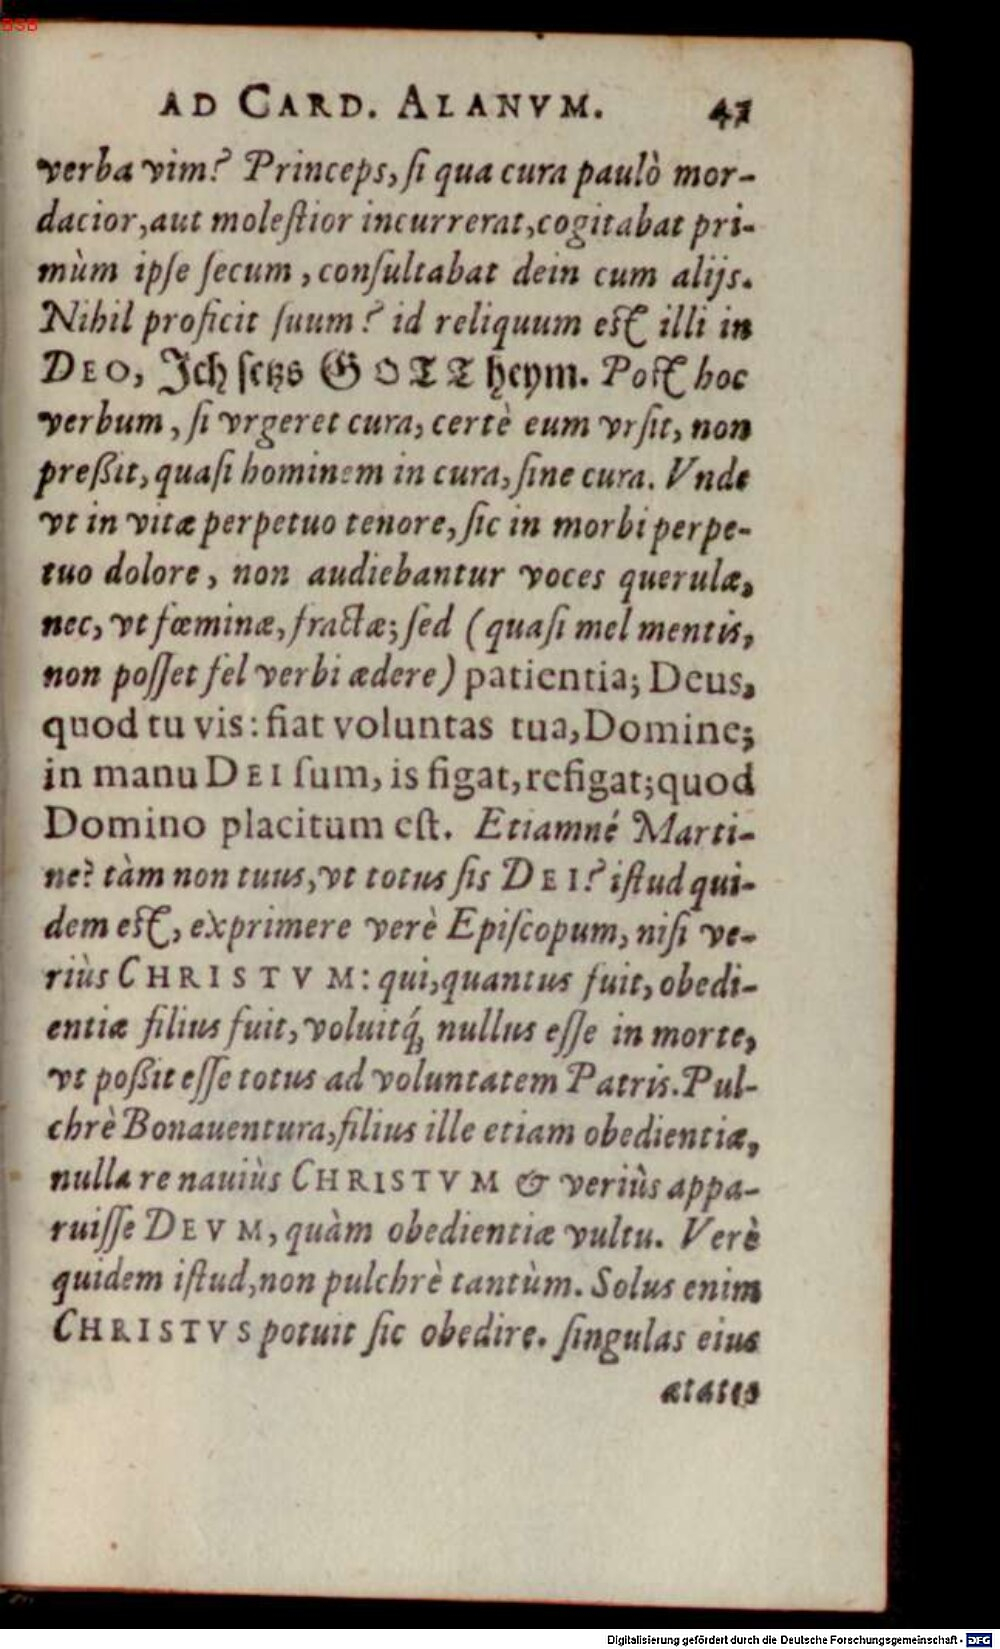 BSB
AD CARD. ALANVM. 41
verba vim? Princeps, ſi qua cura paulò mor-
dacior, aut moleſtior incurrerat, cogitabat pri-
mùm ipſe ſecum, conſultabat dein cum alijs.
Nihil proficit ſuum? id reliquum eſt illi in
DEO, Ich ſetzs GOTT heym. Poſt hoc
verbum, ſi vrgeret cura, certè eum vrſit, non
preßit, quaſi hominem in cura, ſine cura. Vnde
vt in vitæ perpetuo tenore, ſic in morbi perpe-
tuo dolore, non audiebantur voces querulæ,
nec, vt fœminæ, fractæ; ſed (quaſi mel mentis,
non poſſet fel verbi ædere) patientia; Deus,
quod tu vis: fiat voluntas tua, Domine;
in manu DEI ſum, is figat, refigat; quod
Domino placitum eſt. Etiamné Marti-
ne? tàm non tuus, vt totus ſis DEI? iſtud qui-
dem eſt, exprimere verè Epiſcopum, niſi ve-
riùs CHRISTVM: qui, quantus fuit, obedi-
entiæ filius fuit, voluitq́; nullus eſſe in morte,
vt poßit eſſe totus ad voluntatem Patris. Pul-
chrè Bonauentura, filius ille etiam obedientiæ,
nulla re nauiùs CHRISTVM & veriùs appa-
ruiſſe DEVM, quàm obedientiæ vultu. Verè
quidem iſtud, non pulchrè tantùm. Solus enim
CHRISTVS potuit ſic obedire. ſingulas eius
ætates
Digitalisierung gefördert durch die Deutsche Forschungsgemeinschaft - DFG